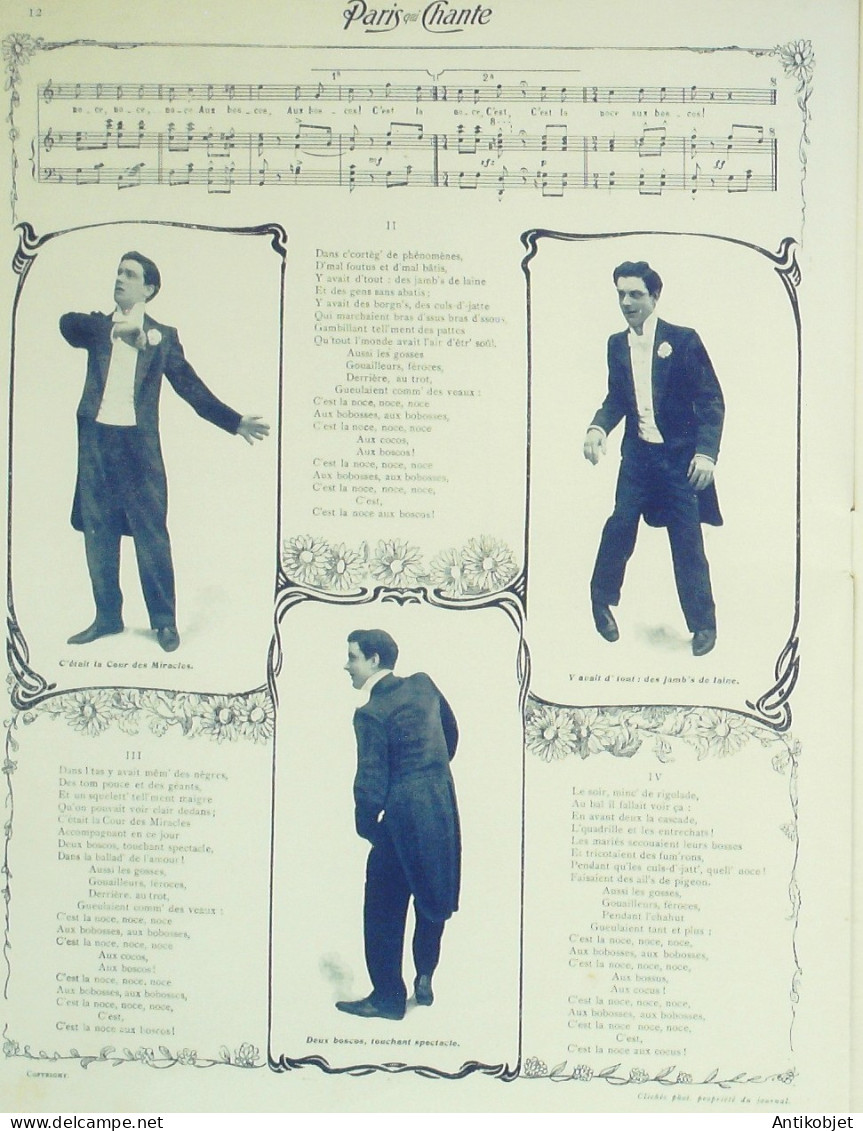 12
Paris qui Chante
1ª 2ª
no_ce, no_ce, no_ce Aux bos_cos, Aux bos_cos! C'est la no_ce, C'est, C'est la noce aux bos_cos!
mf sfz p ff
II
Dans c'cortèg' de phénomènes,
D'mal foutus et d'mal bâtis,
Y avait d'tout : des jamb's de laine
Et des gens sans abatis;
Y avait des borgn's, des culs-d'-jatte
Qui marchaient bras d'ssus bras d'ssous,
Gambillant tell'ment des pattes
Qu'tout l'monde avait l'air d'êtr' soûl.
Aussi les gosses
Gouailleurs, féroces,
Derrière, au trot,
Gueulaient comm' des veaux :
C'est la noce, noce, noce
Aux bobosses, aux bobosses,
C'est la noce, noce, noce
Aux cocos,
Aux boscos!
C'est la noce, noce, noce
Aux bobosses, aux bobosses,
C'est la noce, noce, noce,
C'est,
C'est la noce aux boscos!
C'était la Cour des Miracles.
Y avait d' tout : des jamb's de laine.
III
Dans l'tas y avait mêm' des nègres,
Des tom pouce et des géants,
Et un squelett' tell'ment maigre
Qu'on pouvait voir clair dedans;
C'était la Cour des Miracles
Accompagnant en ce jour
Deux boscos, touchant spectacle,
Dans la ballad' de l'amour!
Aussi les gosses,
Gouailleurs, féroces,
Derrière, au trot,
Gueulaient comm' des veaux :
C'est la noce, noce, noce
Aux bobosses, aux bobosses,
C'est la noce, noce, noce
Aux cocos,
Aux boscos!
C'est la noce, noce, noce
Aux bobosses, aux bobosses,
C'est la noce, noce, noce,
C'est,
C'est la noce aux boscos!
Deux boscos, touchant spectacle.
IV
Le soir, minc' de rigolade,
Au bal il fallait voir ça :
En avant deux la cascade,
L'quadrille et les entrechats!
Les mariés secouaient leurs bosses
Et tricotaient des fum'rons,
Pendant qu'les culs-d'-jatt', quell' noce!
Faisaient des ail's de pigeon.
Aussi les gosses,
Gouailleurs, féroces,
Pendant l'chahut
Gueulaient tant et plus :
C'est la noce, noce, noce,
Aux bobosses, aux bobosses,
C'est la noce, noce, noce,
Aux bossus,
Aux cocus!
C'est la noce, noce, noce,
Aux bobosses, aux bobosses,
C'est la noce noce, noce,
C'est,
C'est la noce aux cocus!
COPYRIGHT.
Clichés phot. propriété du journal.
Antikobjet